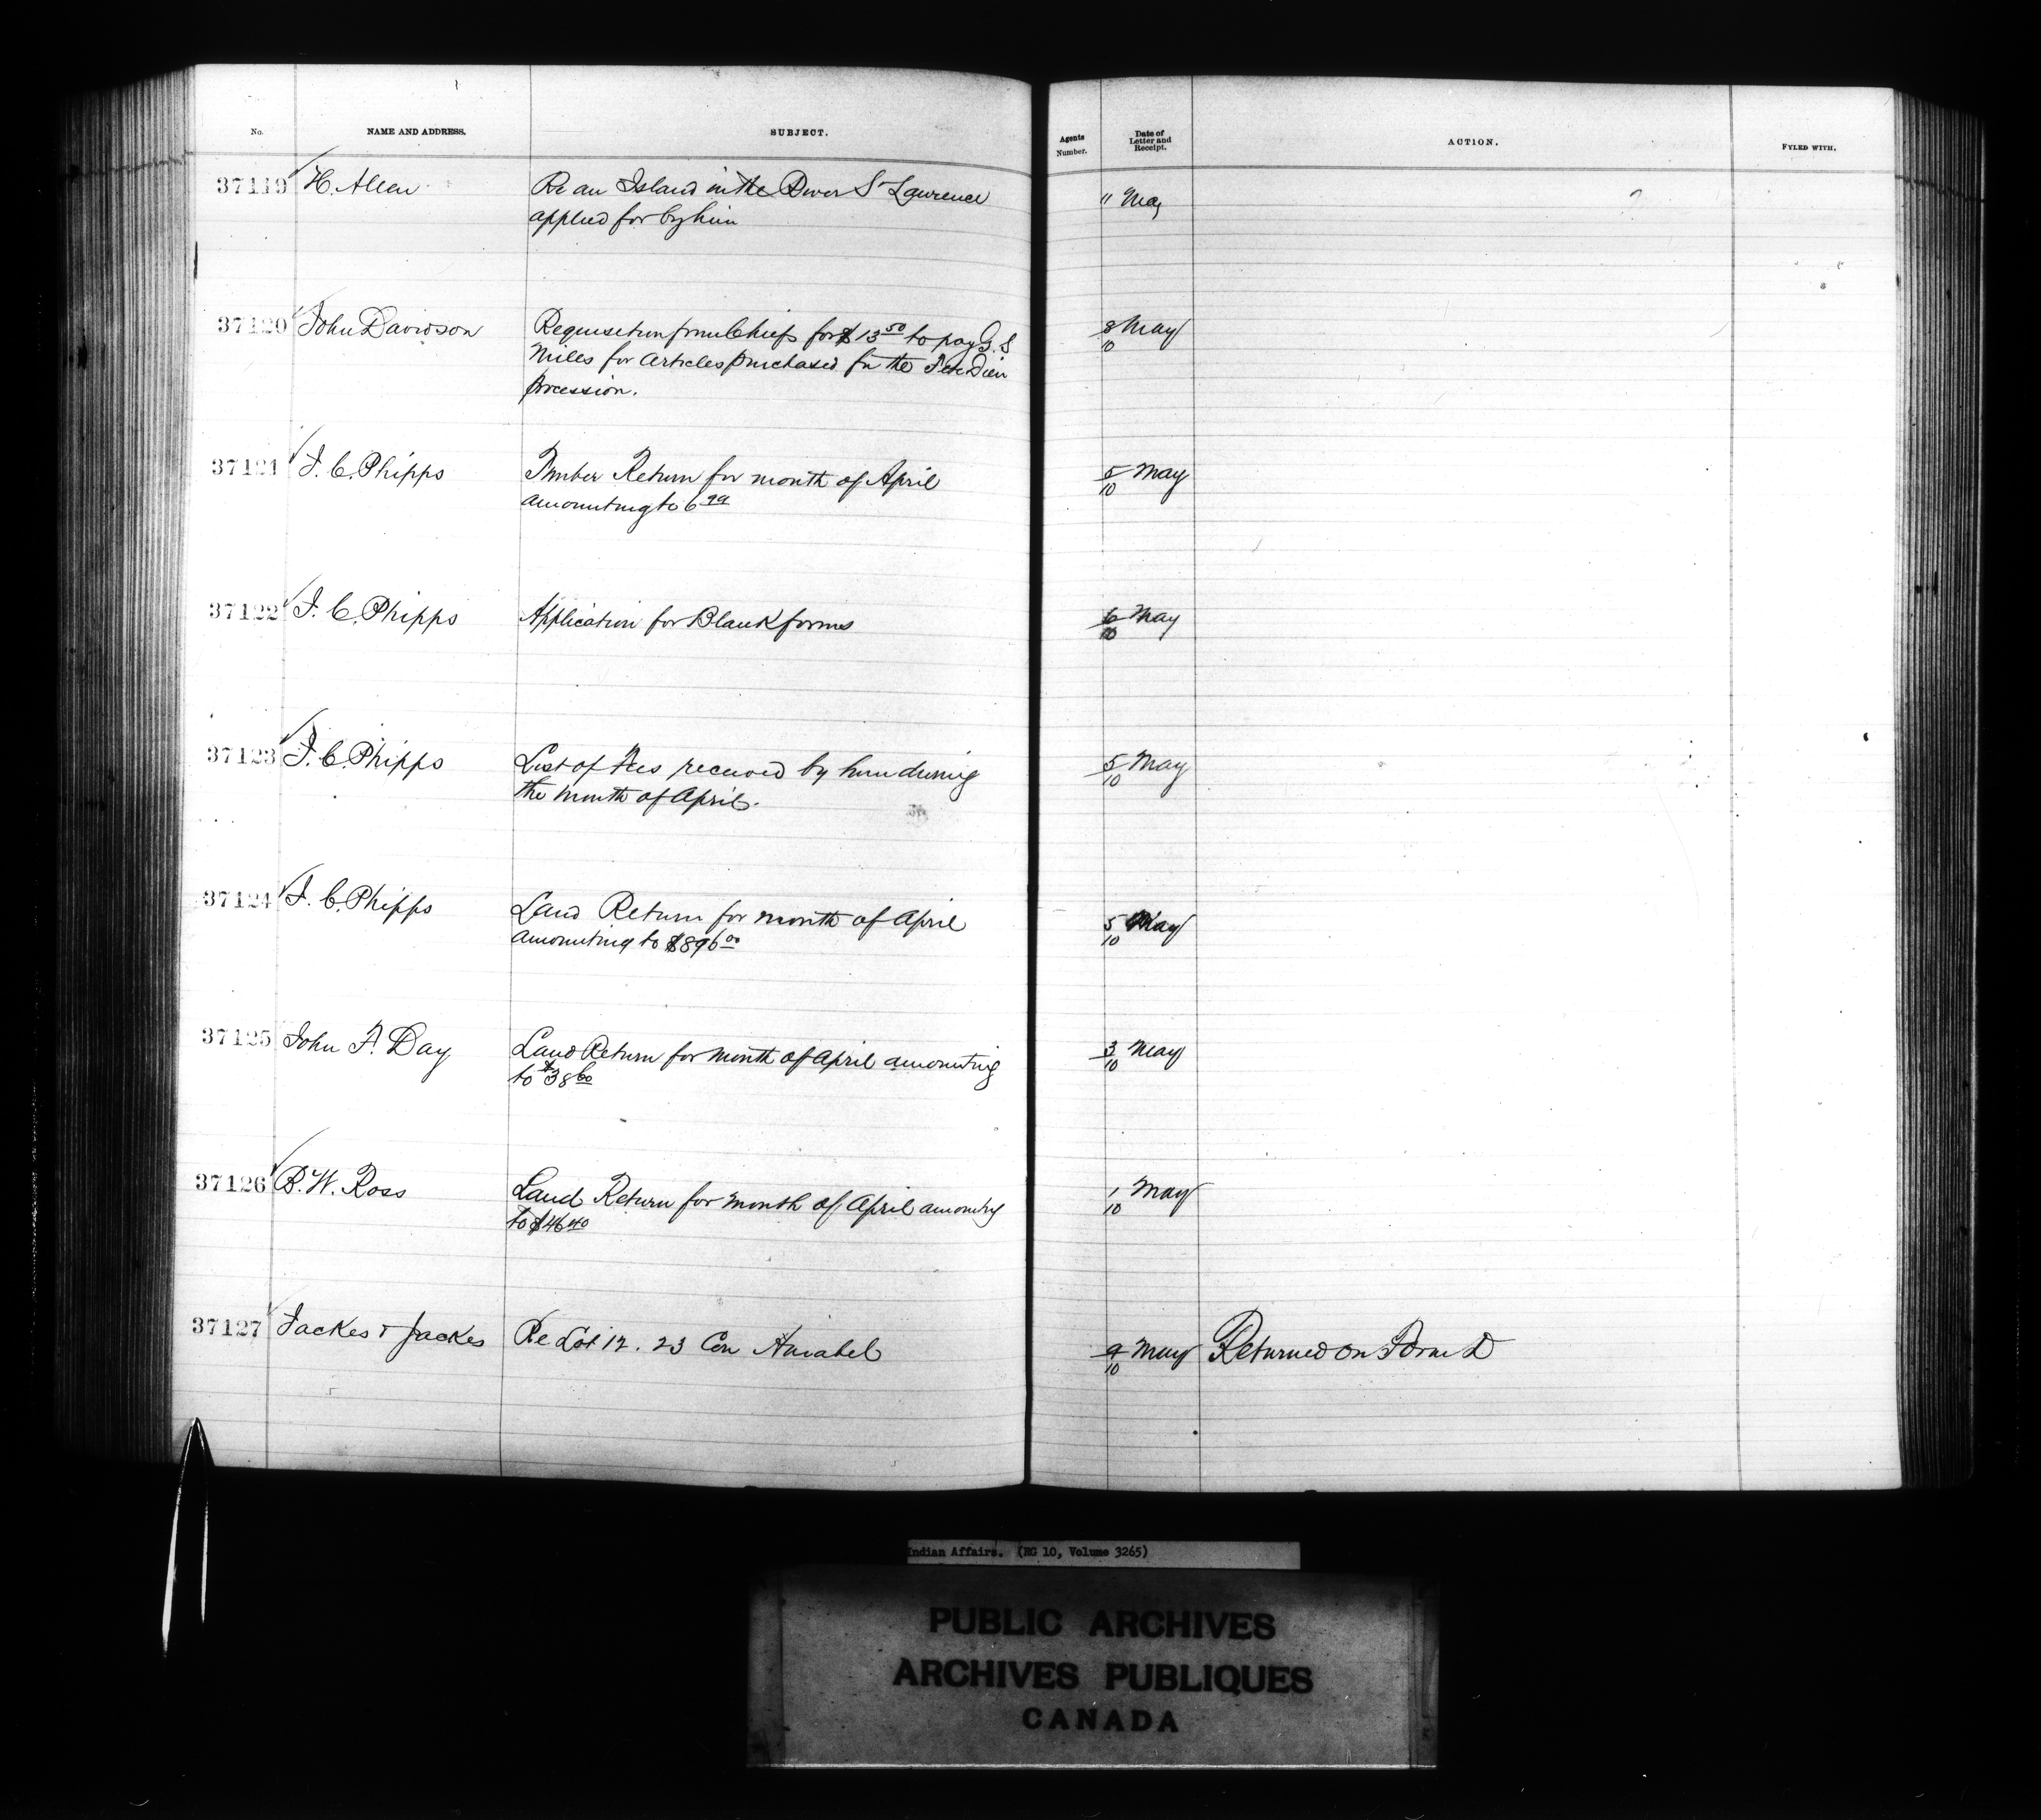 No. NAME AND ADDRESS. SUBJECT. Agents Number. Date of Letter and Receipt. ACTION. FYLED WITH.
37119 H. Allen Re an Island in the River St Lawrence 11 May
applied for by him
37120 John Davidson Requisition from Chiefs for $13 50 to pay G. S 8/10 May
Miles for articles purchased for the Fete Dieu
procession.
37121 J. C. Phipps Timber Return for month of April 5/10 May
amounting to 6 99
37122 J. C. Phipps Application for Blank forms 6/10 May
37123 J. C. Phipps List of Fees received by him during 5/10 May
the month of April.
37124 J. C. Phipps Land Return for month of April 5/10 May
amounting to $896 00
37125 John F. Day Land Return for month of April amounting 3/10 May
to $38 60
37126 B. W. Ross Land Return for month of April amounting 1/10 May
to $46 40
37127 Jackes & Jackes Re Lot 12. 23 Con Amabel 9/10 May Returned on Form D
Indian Affairs. (RG 10, Volume 3265)
PUBLIC ARCHIVES
ARCHIVES PUBLIQUES
CANADA